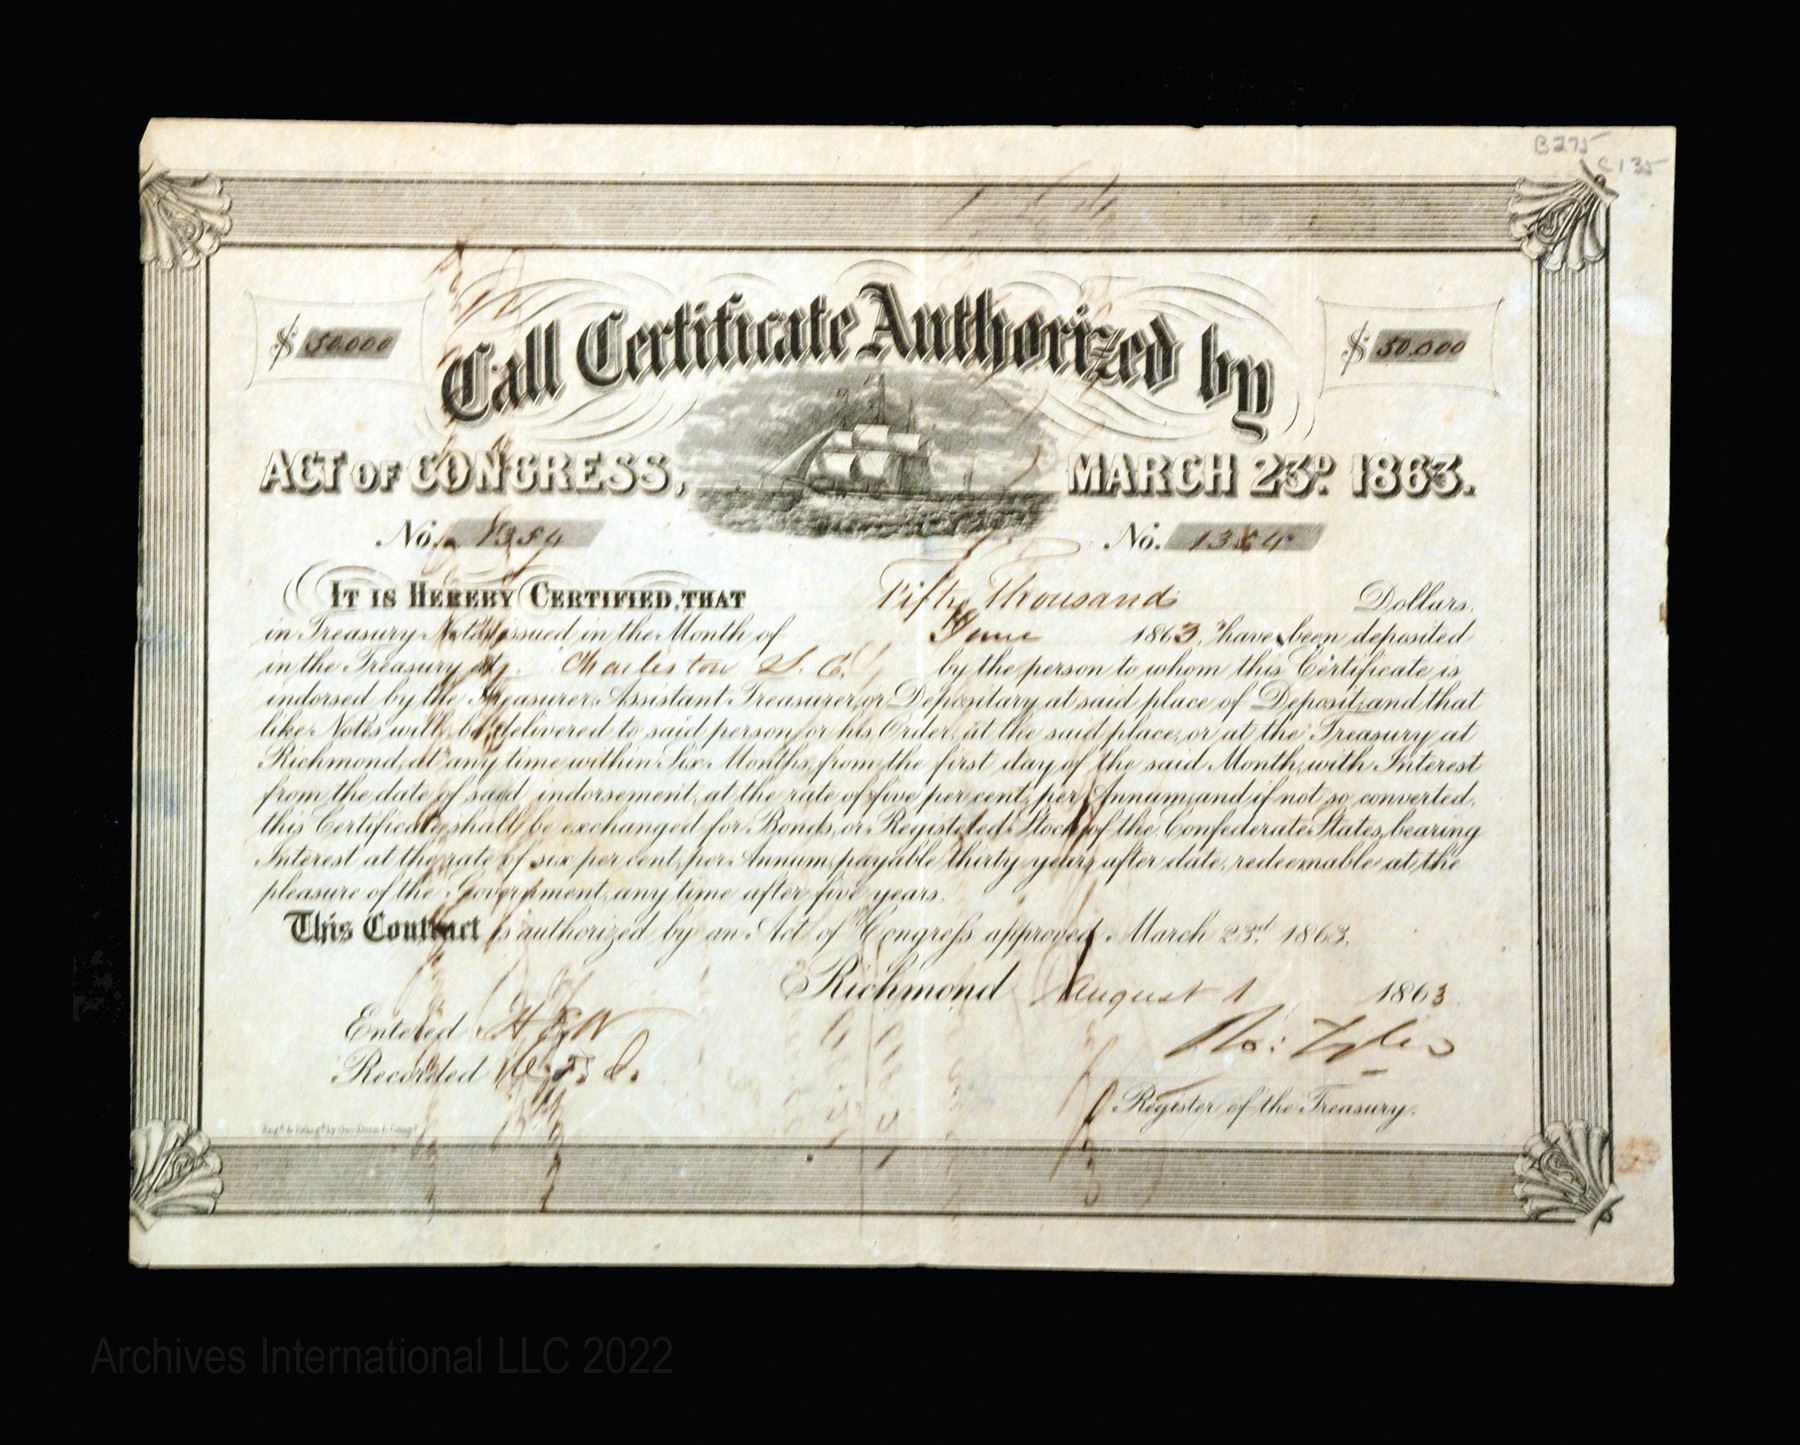 B275
C135
$ 50.000
Call Certificate Authorized by
$ 50.000
ACT OF CONGRESS, MARCH 23D. 1863.
No. 1354 No. 1354
IT IS HEREBY CERTIFIED, THAT Fifty Thousand Dollars,
in Treasury Notes, issued in the Month of June 1863, have been deposited
in the Treasury at Charleston S. C. by the person to whom this Certificate is
indorsed by the Treasurer, Assistant Treasurer, or Depositary at said place of Deposit; and that
like Notes will be delivered to said person, or his Order, at the said place, or at the Treasury at
Richmond, at any time within Six Months, from the first day of the said Month, with Interest
from the date of said indorsement, at the rate of five per cent, per Annum; and if not so converted,
this Certificate shall be exchanged for Bonds, or Registered Stock of the Confederate States, bearing
Interest at the rate of six per cent, per Annum, payable thirty years after date, redeemable at the
pleasure of the Government, any time after five years.
This Contract is authorized by an Act of Congress approved March 23d. 1863.
Richmond August 1 1863
Entered H E W
Ro: Tyler
Recorded
Register of the Treasury.
Archives International LLC 2022